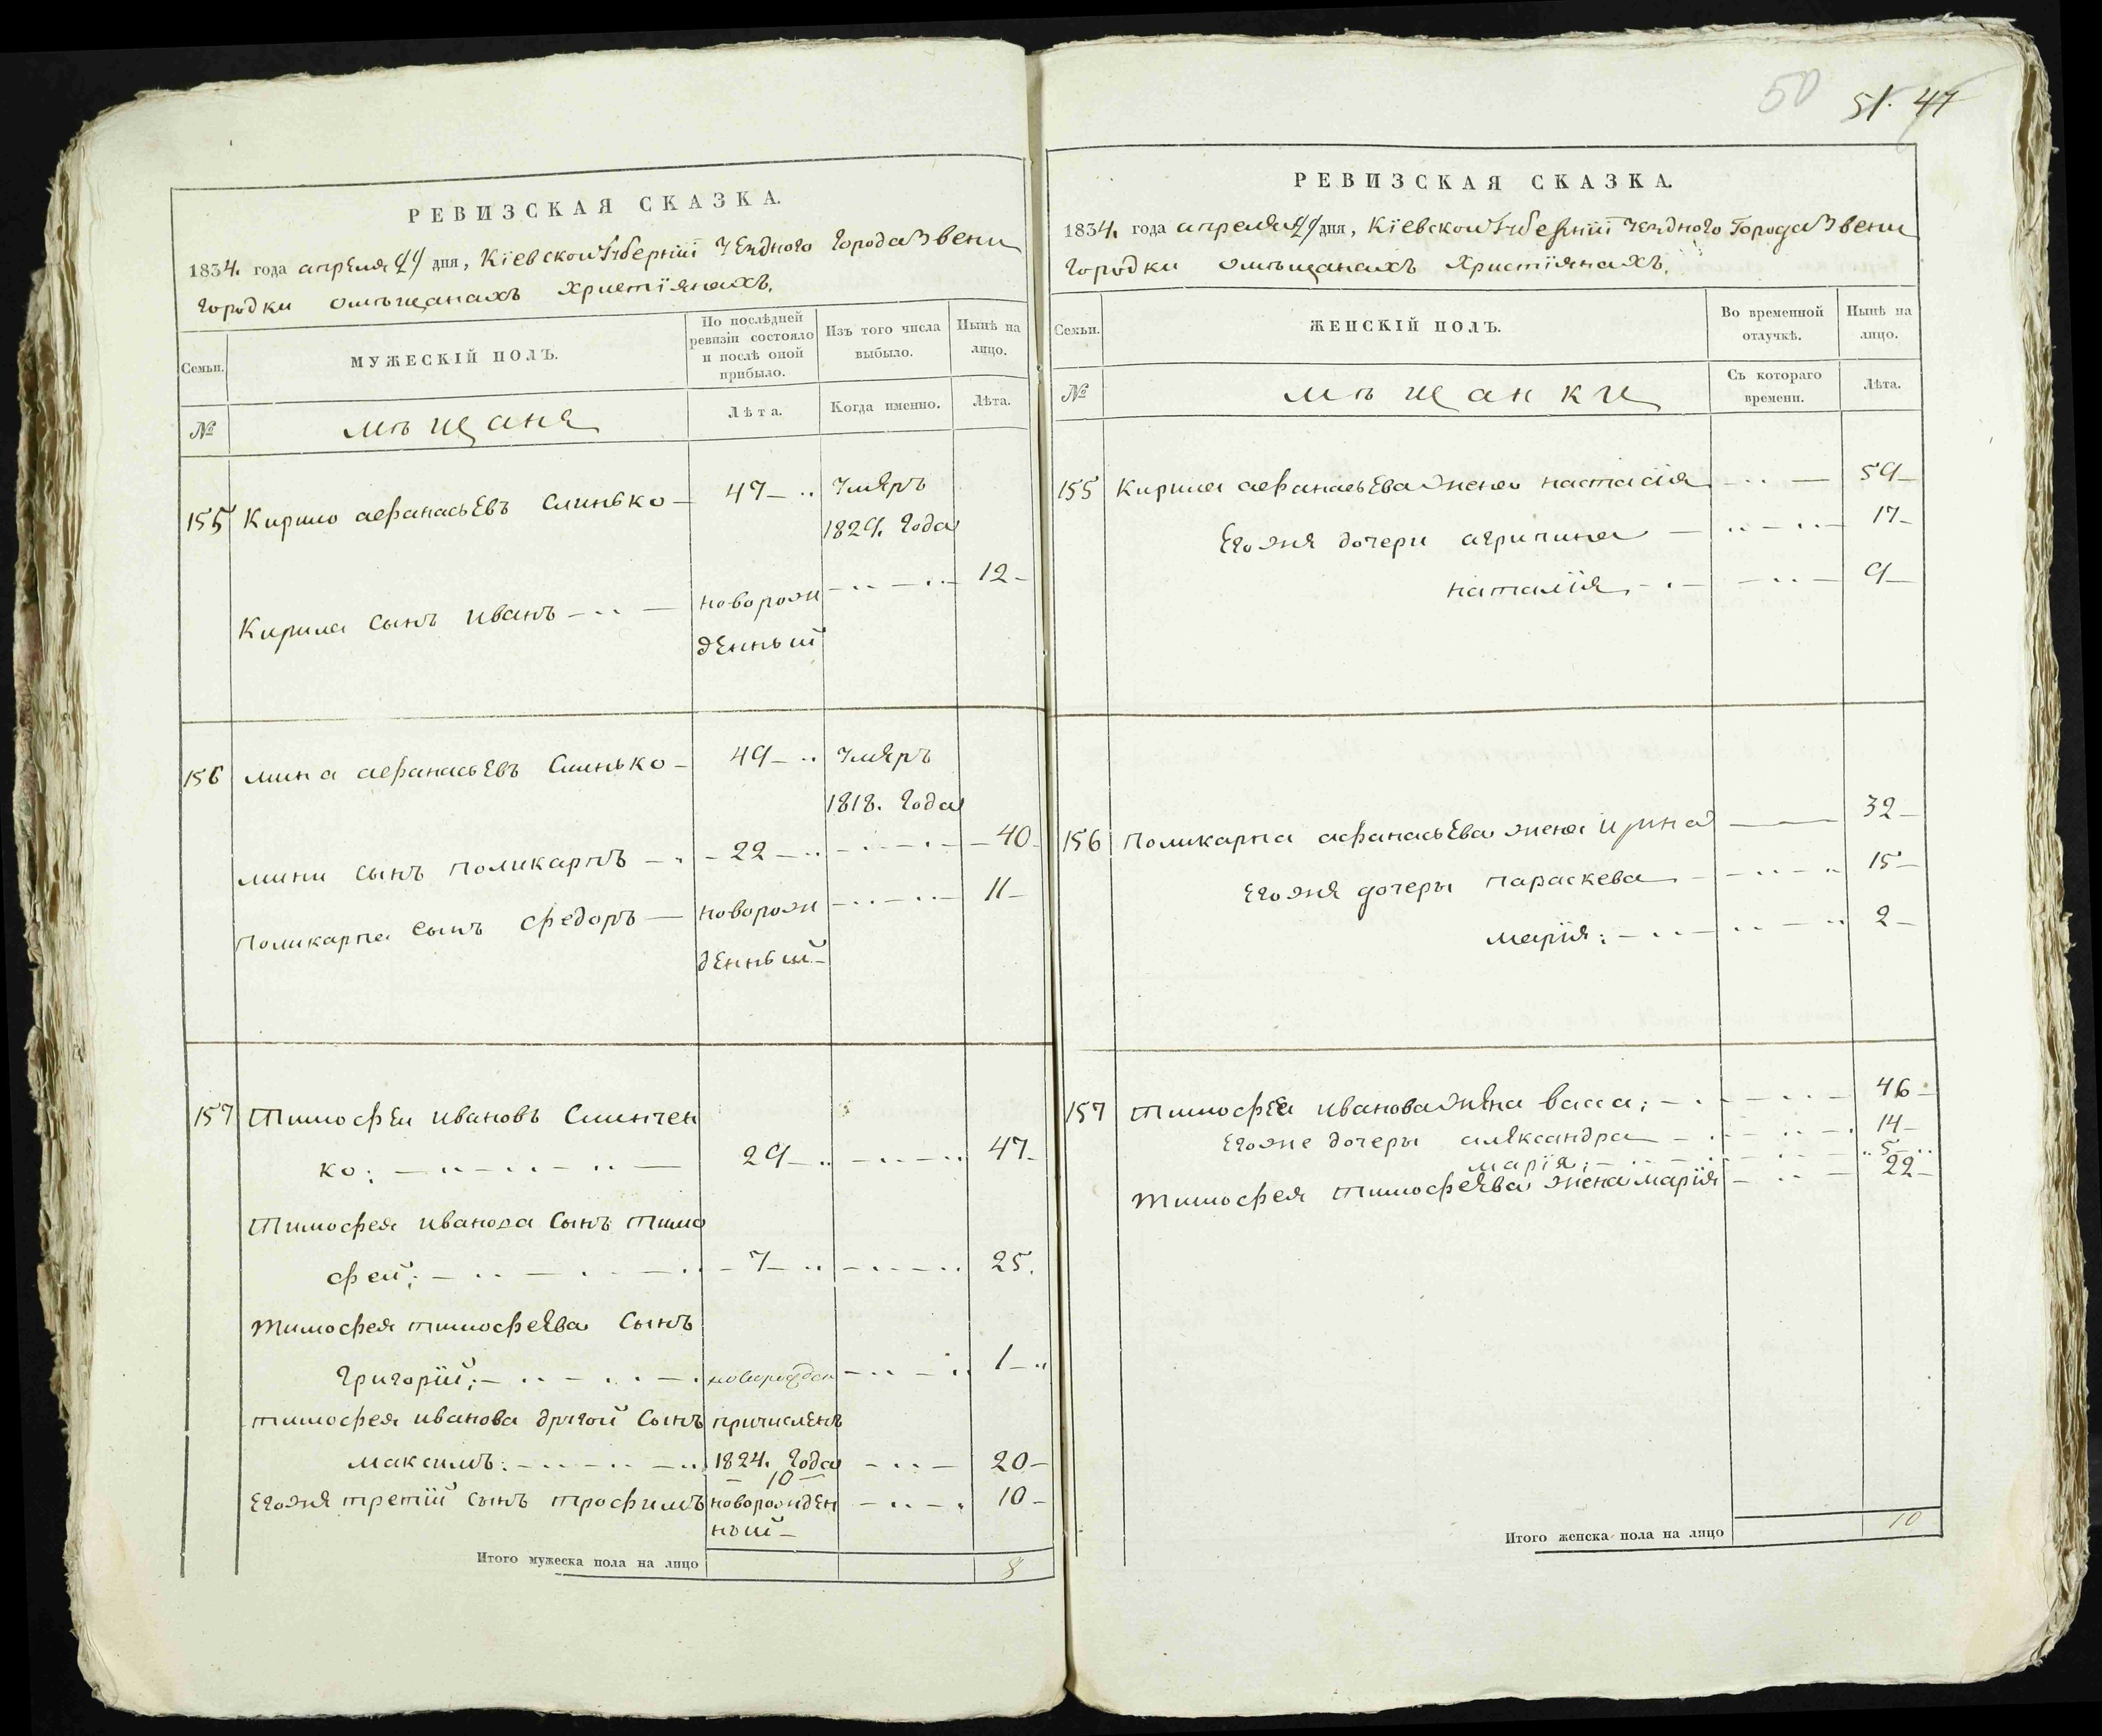 РЕВИЗСКАЯ СКАЗКА.
1834. года апреля дня, Кїевской Губернїи Уезднаго Города Звени
городки омѣщанахъ Христїянахъ.
Семьи. МУЖЕСКІЙ ПОЛЪ. По послѣдней ревизіи состояло и послѣ оной прибыло. Изъ того числа выбыло. Нынѣ на лицо.
№ мѣщаня Лѣта. Когда именно. Лѣта.
155 Кирило афанасьевъ Слинько 47 умяръ
1829. года
Кирила сынъ иванъ новорож 12
денный
156 мина афанасьевъ Слинько 49 умяръ
1818. года
мини сынъ поликарпъ 22 40
поликарпа сынъ федоръ новорож 11
денный
157 Тимофеи ивановъ Слинчен
ко: 29 47
Тимофея иванова сынъ тимо
фей; 7 25.
тимофея тимофеява сынъ
григорїй; новорожден 1
тимофея иванова другой сынъ причисленъ
максимъ: 1824. года 20
10
Егожя третїй сынъ трофимъ новорожден 10
ный
Итого мужеска пола на лицо 8
50 51. 47
РЕВИЗСКАЯ СКАЗКА.
1834. года апреля дня, Кїевской Губернїи Уезднаго Города Звени
городки омѣщанахъ Христїянахъ.
Семьи. ЖЕНСКІЙ ПОЛЪ. Во временной отлучкѣ. Нынѣ на лицо.
№ мѣщанки Съ котораго времени. Лѣта.
155 Кирила афанасьева жена настасїя 59
Егожя дочери агрипина 17
наталїя 9
156 Поликарпа афанасьева жена ирина 32
Егожя дочеры параскева 15
марїя: 2
157 тимофея иванова жена васа; 46
Егоже дочеры александра 14
марїя: 5
тимофея тимофеява жена марїя 22
Итого женска пола на лицо 10